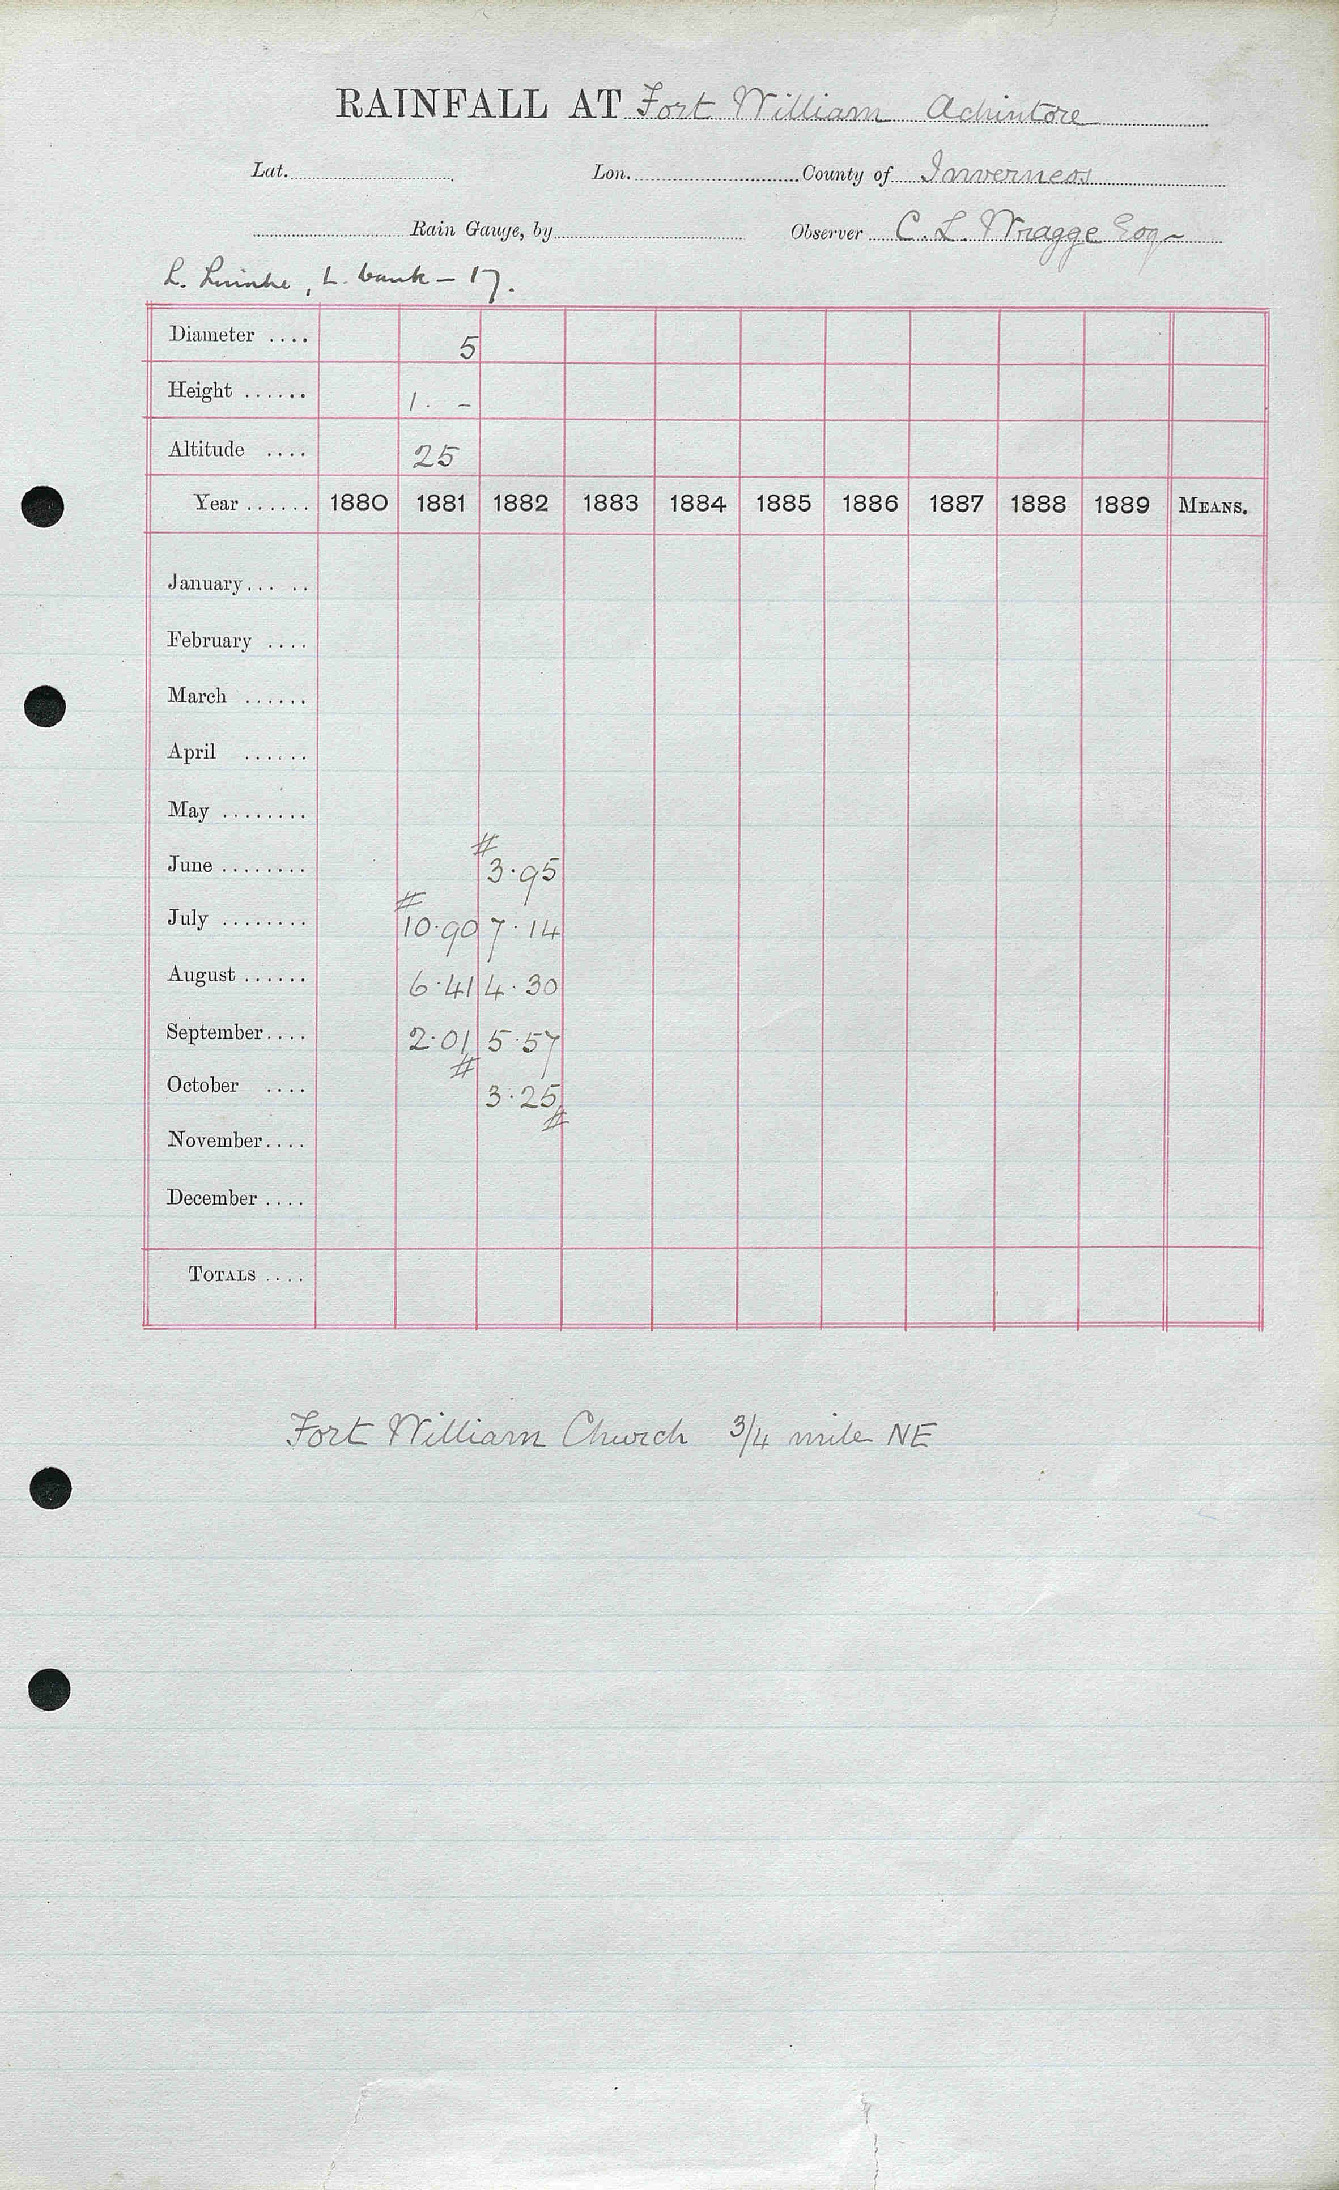 RAINFALL AT Fort William Achintore
Lat. Lon. County of Inverness
Rain Gauge, by Observer C. L. Wragge Esq
L. Linnhe, L. bank – 17.
Diameter .... 5
Height ...... 1. –
Altitude .... 25
Year ...... 1880 1881 1882 1883 1884 1885 1886 1887 1888 1889 MEANS.
January... ..
February ....
March ......
April ......
May ........
#
June ........ 3.95
#
July ........ 10.90 7.14
August ...... 6.41 4.30
September.... 2.01 5.57
#
October .... 3.25
#
November....
December ....
TOTALS ....
Fort William Church 3/4 mile NE